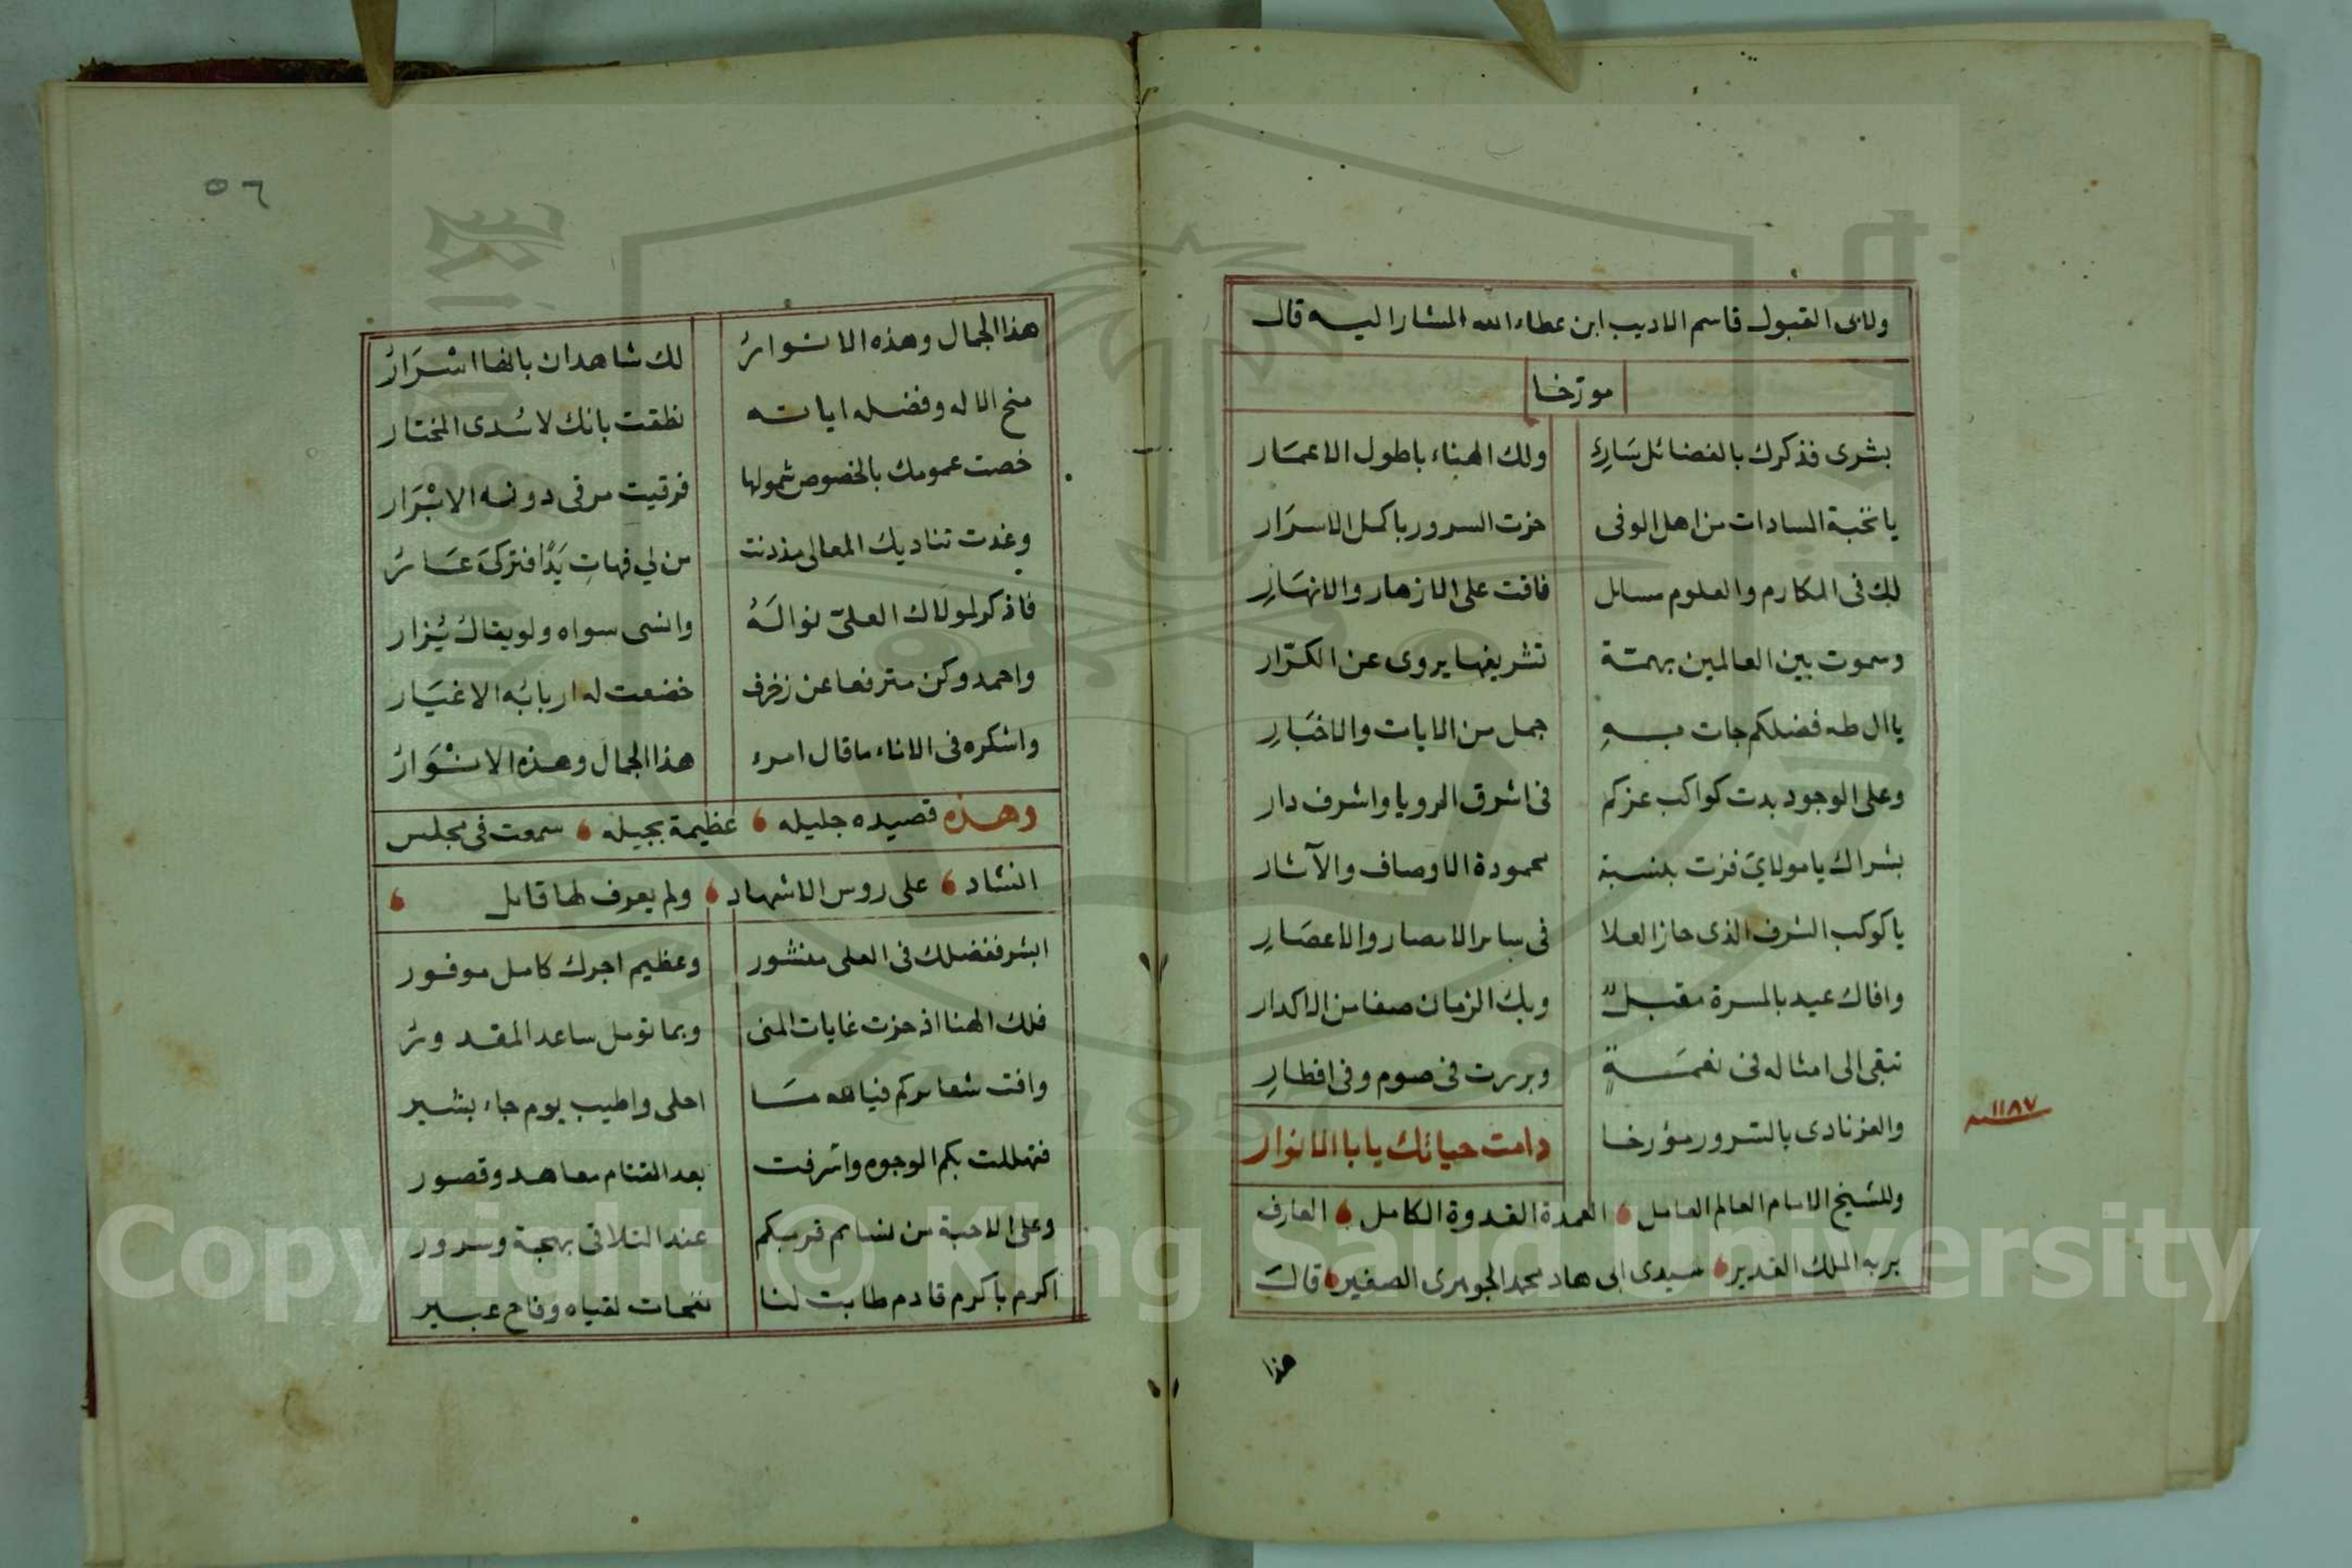 ولابى القبول قاسم الاديب ابن عطاء الله المشار اليه قال
مورخا
بشرى فذكرك بالفضائل سَارِى ولك الهناء باطول الاعمَار
يا نخبة السادات من اهل الوفى حزت السرور باكمل الاسرَار
لك فى المكارم والعلوم مسائل فاقت على الازهار والانهَارِ
وسموت بين العالمين بهمّة تشريفها يروى عن الكرّار
يا ال طه فضلكم جات بهِ جمل من الايات والاخبَارِ
وعلى الوجود بدت كواكب عزكم فى اشرق الرويا واشرف دار
بشراك يا مولاىَ فزت بنسبة محمودة الاوصاف والآثار
يا كوكب الشرف الذى حاز العلا فى ساير الامصار والاعصَارِ
وافاك عيد بالمسرة مقبلٌ وبك الزمان صفا من الاكدار
تبقى الى امثاله فى نعمَةٍ وبررت فى صوم وفى افطارِ
والعز نادى بالسّرور مؤرخا دامت حياتك يا ابا الانوار
١١٨٧ سنه
وللشيخ الامام العالم العامل العمدة القدوة الكامل العارف
بربه الملك القدير سيدى ابى هاد محمد الجوهرى الصغير قالَ
هذا
٥٦
هذا الجمال وهذه الانوارُ لك شاهدان بانها اسْرَارُ
منح الاله وفضله اياته نطقت بانك لاسُدى المختار
خصت عمومك بالخصوص شمولها فرقيت مرقى دونه الابْرَار
وغدت تناديك المعالى مذ دنت من لي فهاتِ يَدًا فتركىَ عَارُ
فاذكر لمولاك العلىّ نوالَهُ وانسى سواه ولو يقال يُزار
واحمد وكن مترفعا عن زخرف خضعت له اربابُه الاغيَار
واشكره فى الاناء ما قال امرء هذا الجمال وهذه الانْوَارُ
وهذه قصيده جليله عظيمة بجيله سمعت فى مجلس
انشاد على روس الاشهاد ولم يعرف لها قايل
ابشر ففضلك فى العلى منشور وعظيم اجرك كامل موفور
فلك الهنا اذ حزت غايات المنى وبما تومل ساعد المقدورُ
وافت شعايركم فيالله مَا احلى واطيب يوم جاء بشير
فتهللت بكم الوجوه واشرفت بعد القتام معاهد وقصور
وعلى الاحبة من نسايم قربكم عند التلاقى بهجة وسرور
اكرم باكرم قادم طابت لنا نفحات لقياه وفاح عبير
Copyright © King Saud University
1957